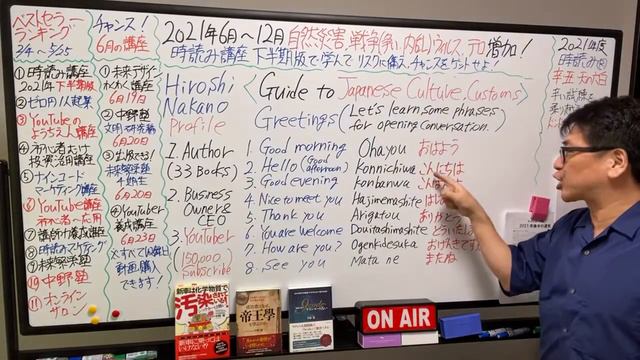 ベストセラーランキング
3/4〜5/5
①時読み講座
2021年下半期版
②ゼロ円/人起業
③YouTubeの
④初心者むけ
投資活用講座
⑤ナインコード
マーケティング講座
⑥YouTube講座
初心者へ応用
⑦講師養成講座
⑧時読みマーケティング
⑨未来塾
⑩中野塾
⑪オンライン
サロン
チャンス!
6月の講座
①未来デザイン
わくわく講座
6月19日
②中野塾
6月20日
③出版できる!
4期生
6月20日
④YouTuber
養成講座
6月23日
※すべて
動画購入
できます!
2021年6月〜12月 自然災害、戦争、内乱、ウィルス、テロ増加!
時読み講座 下半期版で学んで リスクに備え、チャンスをゲットせよ!
Hiroshi
Nakano
Profile
1. Author
(33 Books)
2. Business
Owner &
CEO
3. YouTuber
(150,000
Subscribe)
Guide to Japanese Culture, Customs
Greetings (Let's learn some phrases
for opening conversation.)
1. Good morning Ohayou おはよう
2. Hello (Good afternoon) Konnichiwa こんにちは
3. Good evening Konbanwa
4. Nice to meet you Hajimemashite
5. Thank you Arigatou ありがとう
6. You are welcome Douitashimashite
7. How are you? Ogenkidesuka
8. See you Mata ne またね
2021年度
時読み
辛丑 六白
新車は化学物質で
汚染されている
帝王學
ON AIR